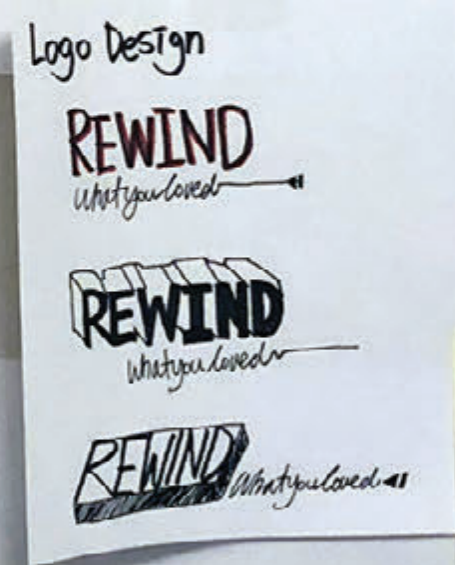 Logo Design
REWIND
whatyouloved
REWIND
whatyouloved
REWIND whatyouloved